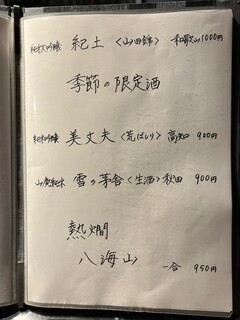 純米大吟醸 紀土 <山田錦> 和歌山 1000円
季節の限定酒
純米吟醸 美丈夫 <荒ばしり> 高知 900円
山廃純米 雪の茅舎 <生酒> 秋田 900円
熱燗
八海山 一合 950円